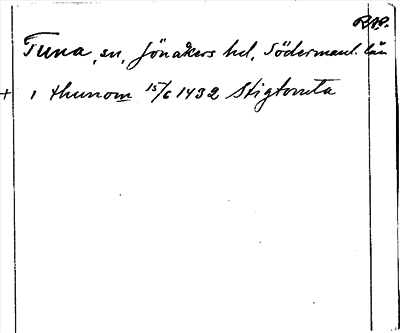 RAP.
Tuna, sn, Jönåkers hd, Södermanl. län
+ i thunom 15/6 1432 Stigtomta